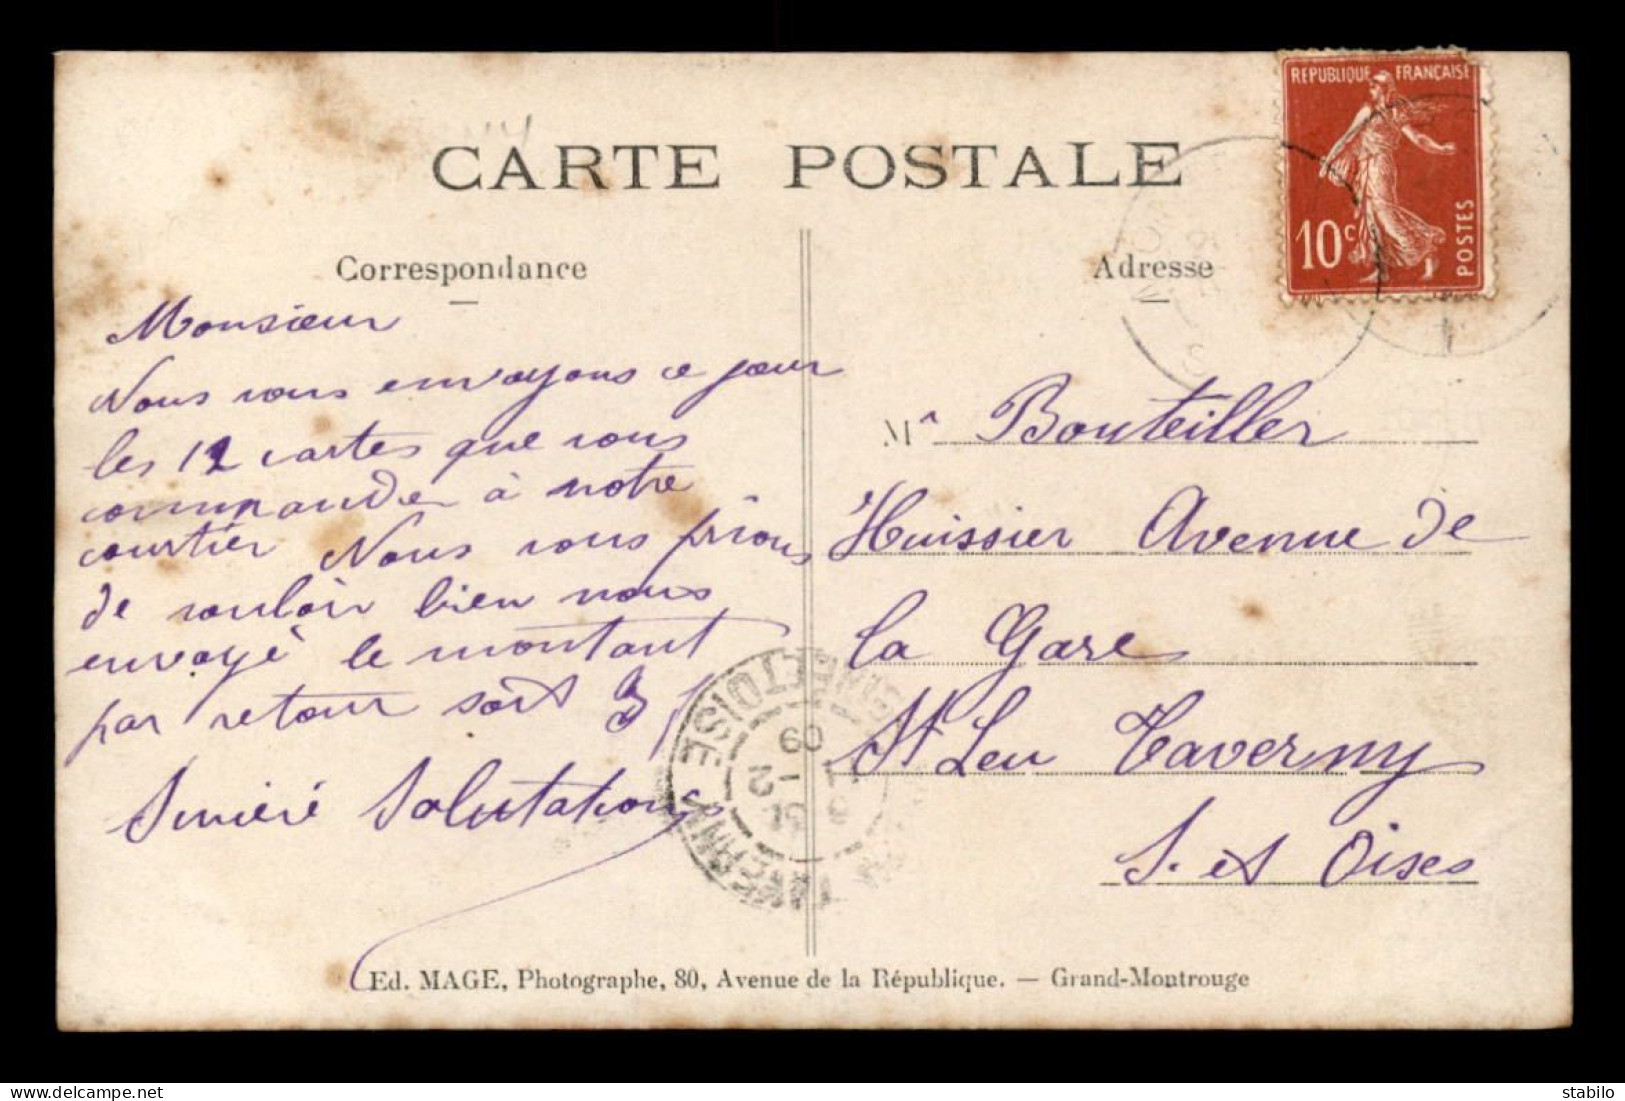 CARTE POSTALE
RÉPUBLIQUE FRANÇAISE
10c
POSTES
Correspondance
Adresse
Monsieur
Nous vous envoyons ce jour
les 12 cartes que vous
commander à notre
courtier Nous vous prions
de vouloir bien nous
envoyé le montant
par retour soit 3f
Sincéré Salutations
Mr Bouteiller
Huissier Avenue de
la Gare
St Leu Taverny
S. et Oises
SEINE ET OISE
09
Ed. MAGE, Photographe, 80, Avenue de la République. — Grand-Montrouge
stabilo